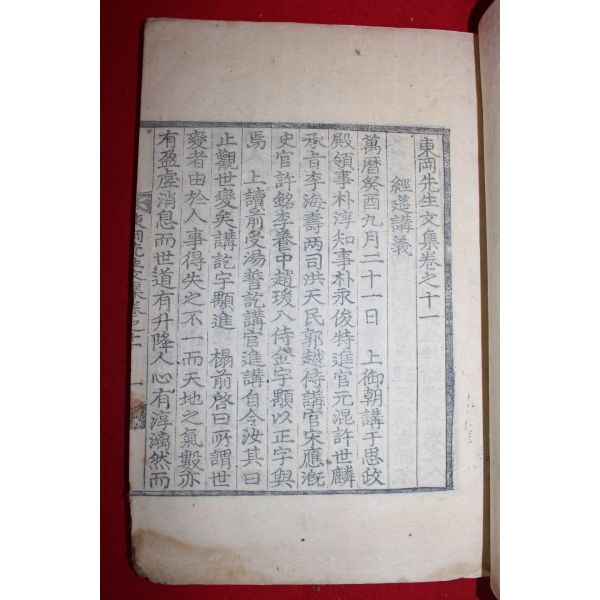 東岡先生文集卷之十一
經筵講義
萬曆癸酉九月二十一日 上御朝講于思政
殿領事朴淳知事朴永俊特進官元混許世麟
承旨李海壽兩司洪天民郭越侍講官宋應漑
史官許銘李養中趙瑗入侍金字顒以正字與
焉 上讀前受湯誓訖講官進講自今汝其曰
止觀世變矣講訖字顒進 榻前啓曰所謂世
變者由於人事得失之不一而天地之氣數亦
有盈虛消息而世道有升降人心有淳漓然而
東岡先生文集卷之十一 一